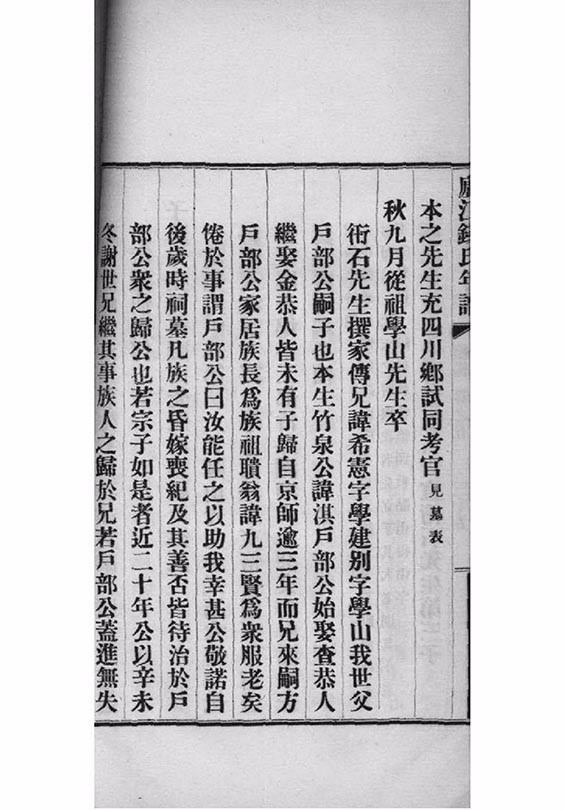 廬江錢氏年譜
本之先生充四川鄉試同考官見墓表
秋九月從祖學山先生卒
衎石先生撰家傳兄諱希憲字學建別字學山我世父
戶部公嗣子也本生竹泉公諱淇戶部公始娶查恭人
繼娶金恭人皆未有子歸自京師逾三年而兄來嗣方
戶部公家居族長為族祖瓆翁諱九三賢為衆服老矣
倦於事謂戶部公曰汝能任之以助我幸甚公敬諾自
後歲時祠墓凡族之昏嫁喪紀及其善否皆待治於戶
部公衆之歸公也若宗子如是者近二十年公以辛未
冬謝世兄繼其事族人之歸於兄若戶部公蓋進無失